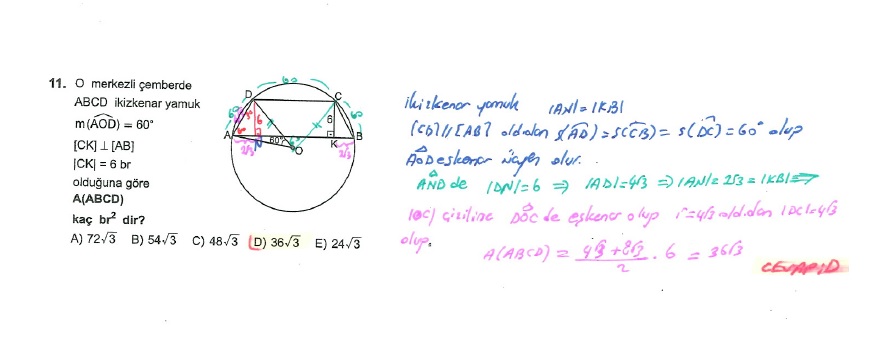 11. O merkezli çemberde
ABCD ikizkenar yamuk
m(AOD) = 60°
[CK] ⊥ [AB]
|CK| = 6 br
olduğuna göre
A(ABCD)
kaç br² dir?
A) 72√3 B) 54√3 C) 48√3 D) 36√3 E) 24√3
60
D C
60 6 6 60
A 60° K B
2√3 N O 2√3
ikizkenar yamuk |AN| = |KB|
[CD] // [AB] olduğundan s(AD) = s(CB) = s(DC) = 60° olup
AOD eşkenar üçgen olur.
AND de |DN| = 6 ⇒ |AD| = 4√3 ⇒ |AN| = 2√3 = |KB| ⇒
[OC] çizilirse DOC de eşkenar olup r = 4√3 old.dan |DC| = 4√3
olup.
A(ABCD) = 4√3 + 8√3 / 2 . 6 = 36√3
CEVAP: D